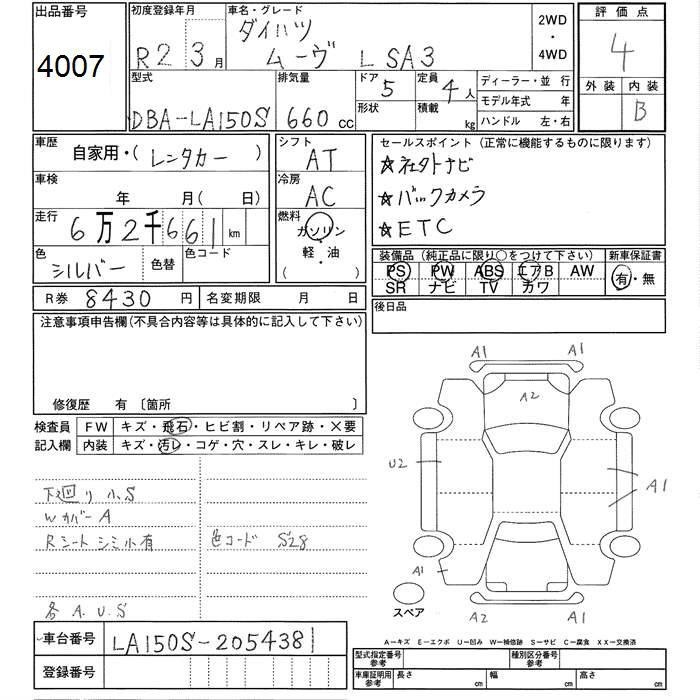 出品番号
4007
初度登録年月
R2 3月
車名・グレード
ダイハツ
ムーヴ L SA3
2WD
・
4WD
評価点
4
外装 内装
B
型式
DBA-LA150S
排気量
660 cc
ドア
5
形状
定員
4人
積載
kg
ディーラー・並行
モデル年式 年
ハンドル 左・右
車歴
自家用・(レンタカー)
車検
年 月( 日)
走行
6万2千661km
色
シルバー
色替
色コード
シフト
AT
冷房
AC
燃料
ガソリン
・
軽・油
セールスポイント(正常に機能するものに限ります)
☆社外ナビ
☆バックカメラ
☆ETC
装備品(純正品に限り○をつけて下さい)
PS PW ABS エアB AW
SR ナビ TV カワ
新車保証書
有・無
R券 8430円
名変期限 月 日
後日品
注意事項申告欄(不具合内容等は具体的に記入して下さい)
修復歴 有〔箇所 〕
検査員
記入欄
FW キズ・飛石・ヒビ割・リペア跡・×要
内装 キズ・汚レ・コゲ・穴・スレ・キレ・破レ
下廻り小S
WカバーA
Rシートシミ小有
色コード S28
各A.U.S
A1 A1
A2
U2
A1
A1
A2 A1
スペア
A-キズ E-エクボ U-凹み W-補修跡 S-サビ C-腐食 XX-交換済
車台番号 LA150S-2054381
登録番号
型式指定番号
参考
種別区分番号
参考
車庫証明用
参考
長さ cm 幅 cm 高さ cm